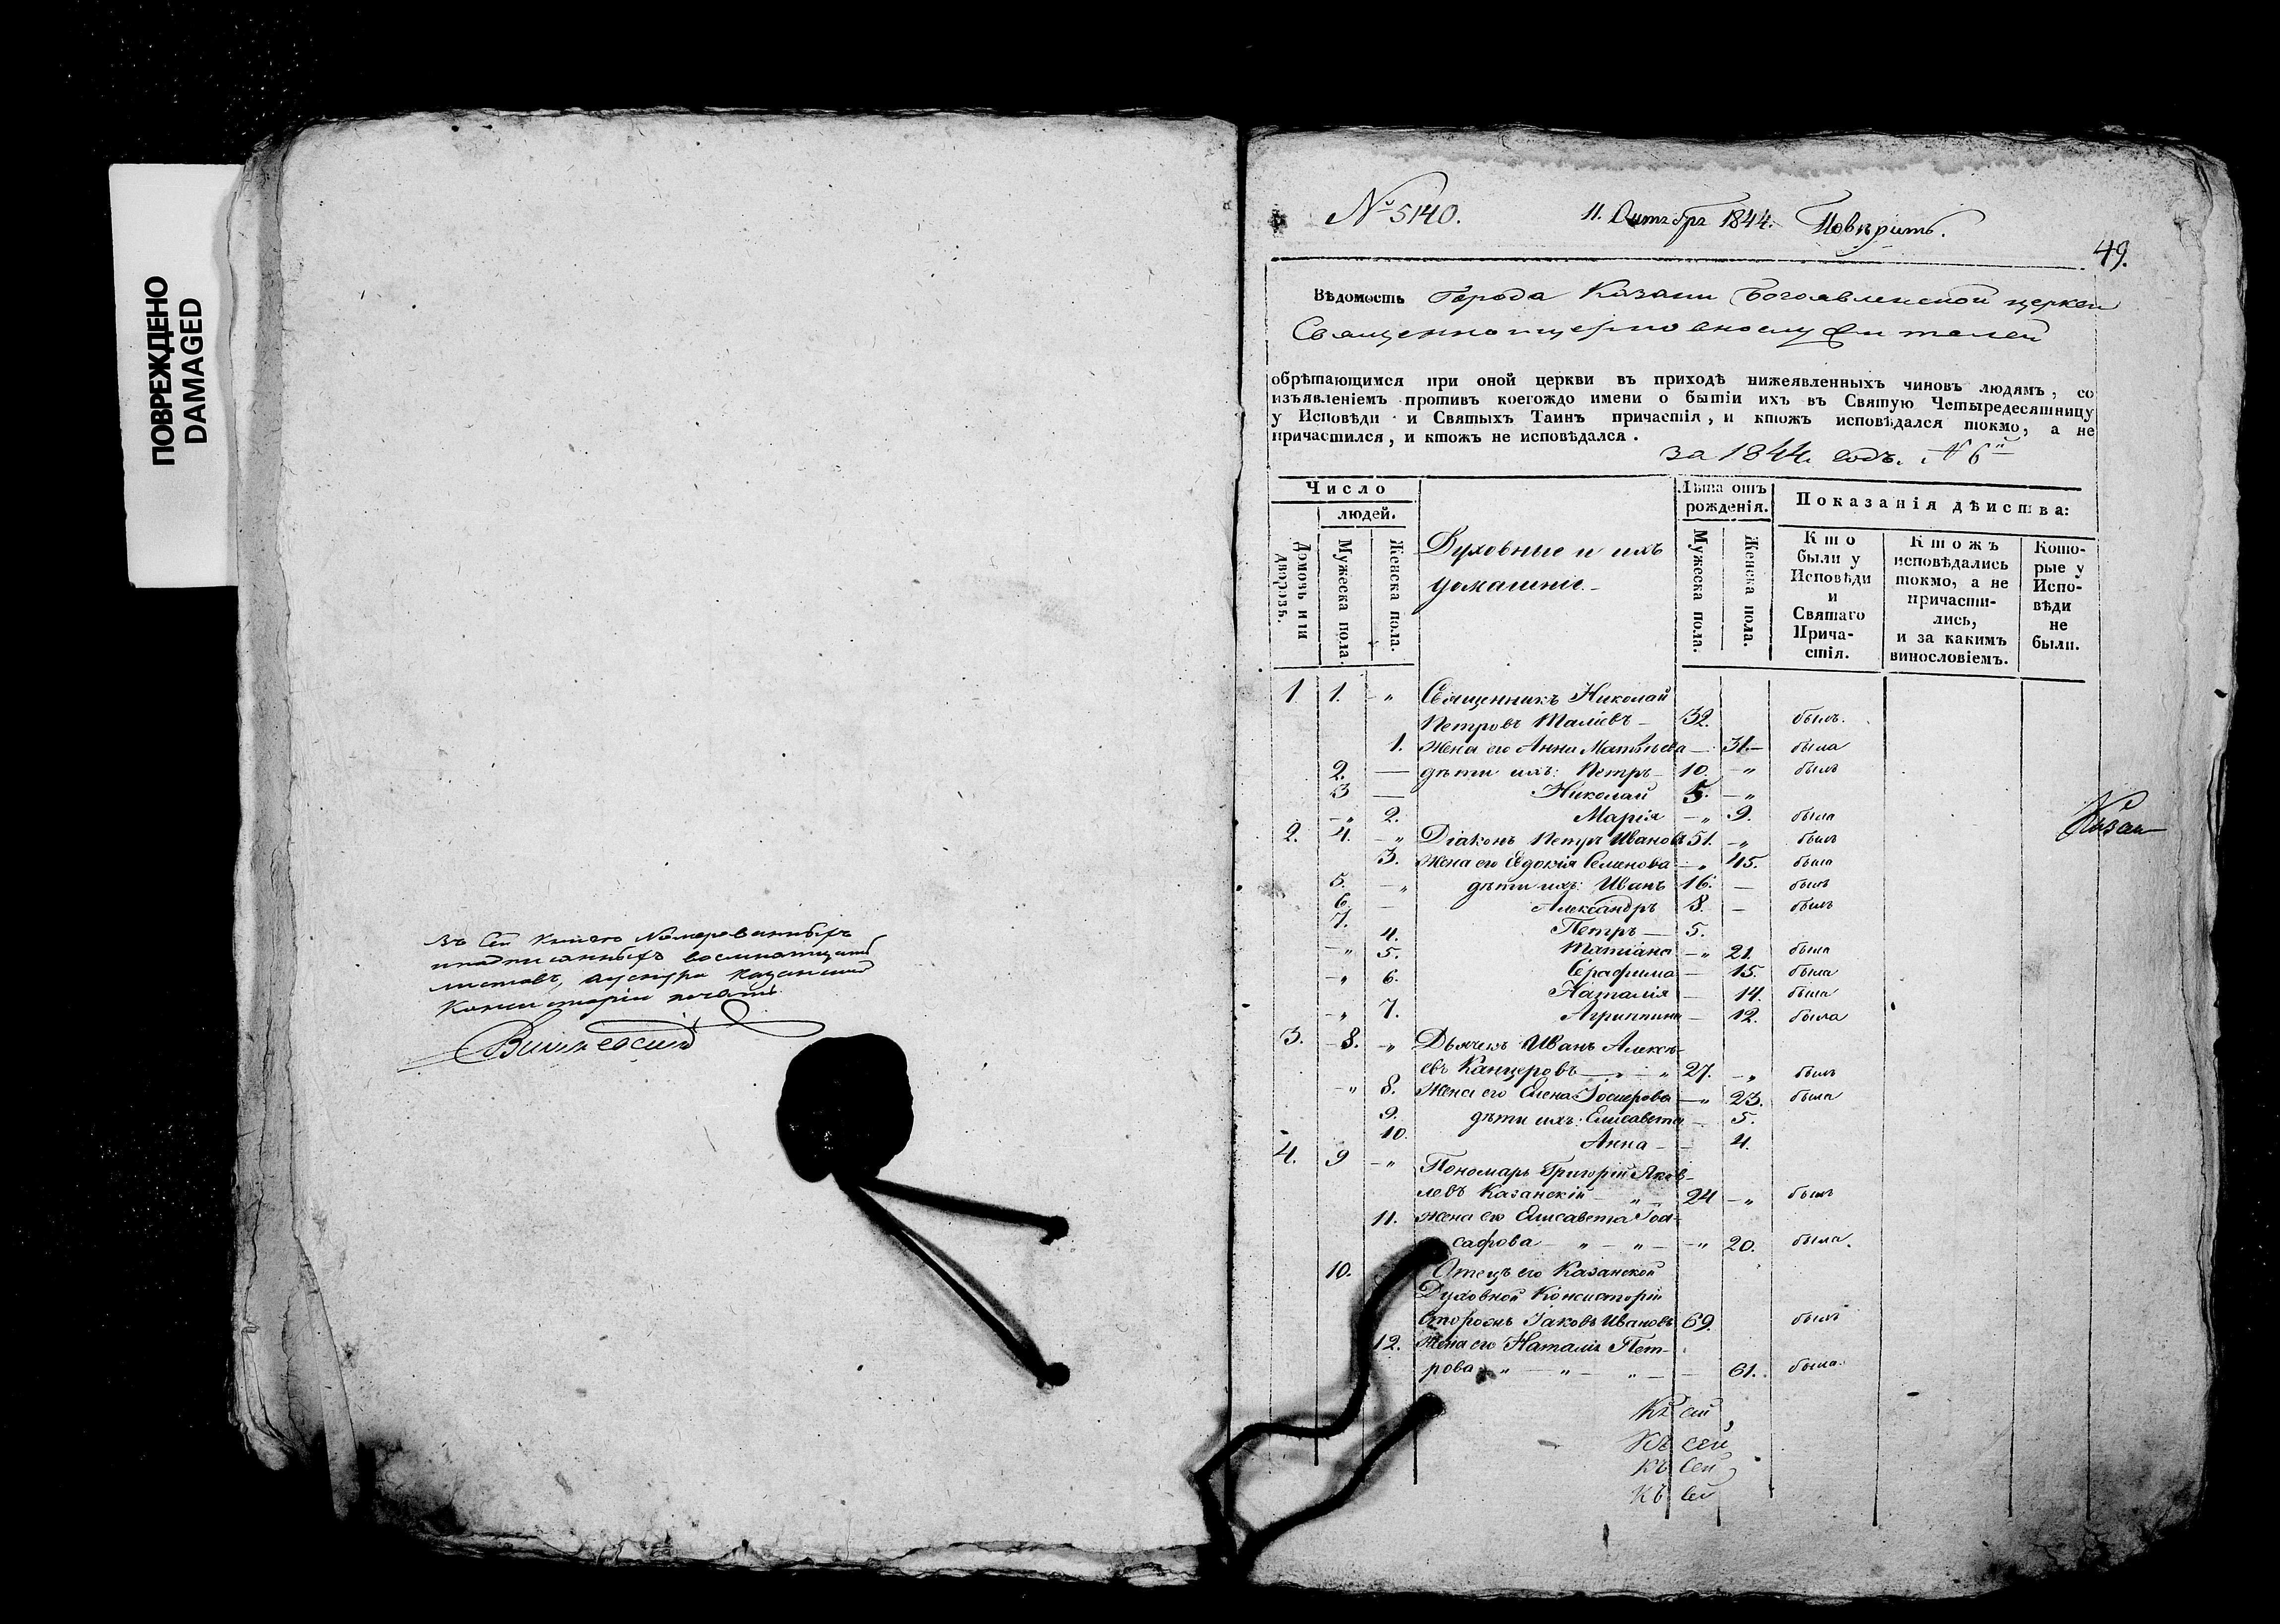 ПОВРЕЖДЕНО
DAMAGED
Въ сей книге номерованныхъ
листовъ,
Консисторіи печать
№ 5140. 11. Октября 1844. Повѣрить.
49.
Вѣдомость Города Казани Богоявленской церкви
Священноицерковнослужителей
обрѣтающимся при оной церкви въ приходѣ нижеявленныхъ чиновъ людямъ, со
изъявленіемъ противъ коегождо имени о бытіи ихъ въ Святую Четыредесятницу
у Исповѣди и Святыхъ Таинъ причастія, и ктожъ исповѣдался токмо, а не
причастился, и ктожъ не исповѣдался.
за 1844. годъ. № 6й
Число
людей.
Домовъ или дворовъ.
Мужеска пола.
Женска пола.
Духовные и ихъ
домашніе.
Лѣта отъ
рожденія.
Мужеска пола.
Женска пола.
Показанія дѣйства:
Кто
были у
Исповѣди
и
Святаго
Прича-
стія.
Ктожъ
исповѣдались
токмо, а не
причасти-
лись,
и за какимъ
винословіемъ.
Кото-
рые у
Испо-
вѣди
не
были.
1 1. " Священникъ Николай
Петровъ Маліевъ — 32. былъ.
1. Жена его Анна Матвѣева — 31. — была
2. — дѣти ихъ: Петръ — 10. " былъ
3 — Николай 5. — "
— " 2. Марія — " 9. была
Казан
2. 4. — " Діаконъ Петръ Ивановъ 51. — " былъ
3. Жена его Евдокія Семенова — " 45. была
5. — " дѣти ихъ: Иванъ 16. — былъ
6. — Александръ 8. — былъ
7. Петръ — 5.
4.
— " 5. Татіана — " 21. была
Серафима — 15. была
— " 6. Наталія — 14. была
— " 7. Агриппина — 12. была
3. — 8. " Дьячекъ Иванъ Алексѣ-
евъ Канцеровъ — " — " 27. — " былъ
— " 8. Жена его Елена — " 23. была
9. дѣти ихъ: Елисавета — 5.
10. Анна — 4.
4. 9 — " Пономарь Григорій Яков-
левъ Казанскій — " 24 — " былъ
11. Жена его Елисавета Іоа-
сафова — " — " — " 20. была.
10. Отецъ его Казанской
Духовной Консисторіи
Сторожъ Іаковъ Ивановъ 69. былъ
12. Жена его Наталія Пет-
рова " — " — " — — 61. была.
Къ сей
Къ сей
Къ сей
Къ сей